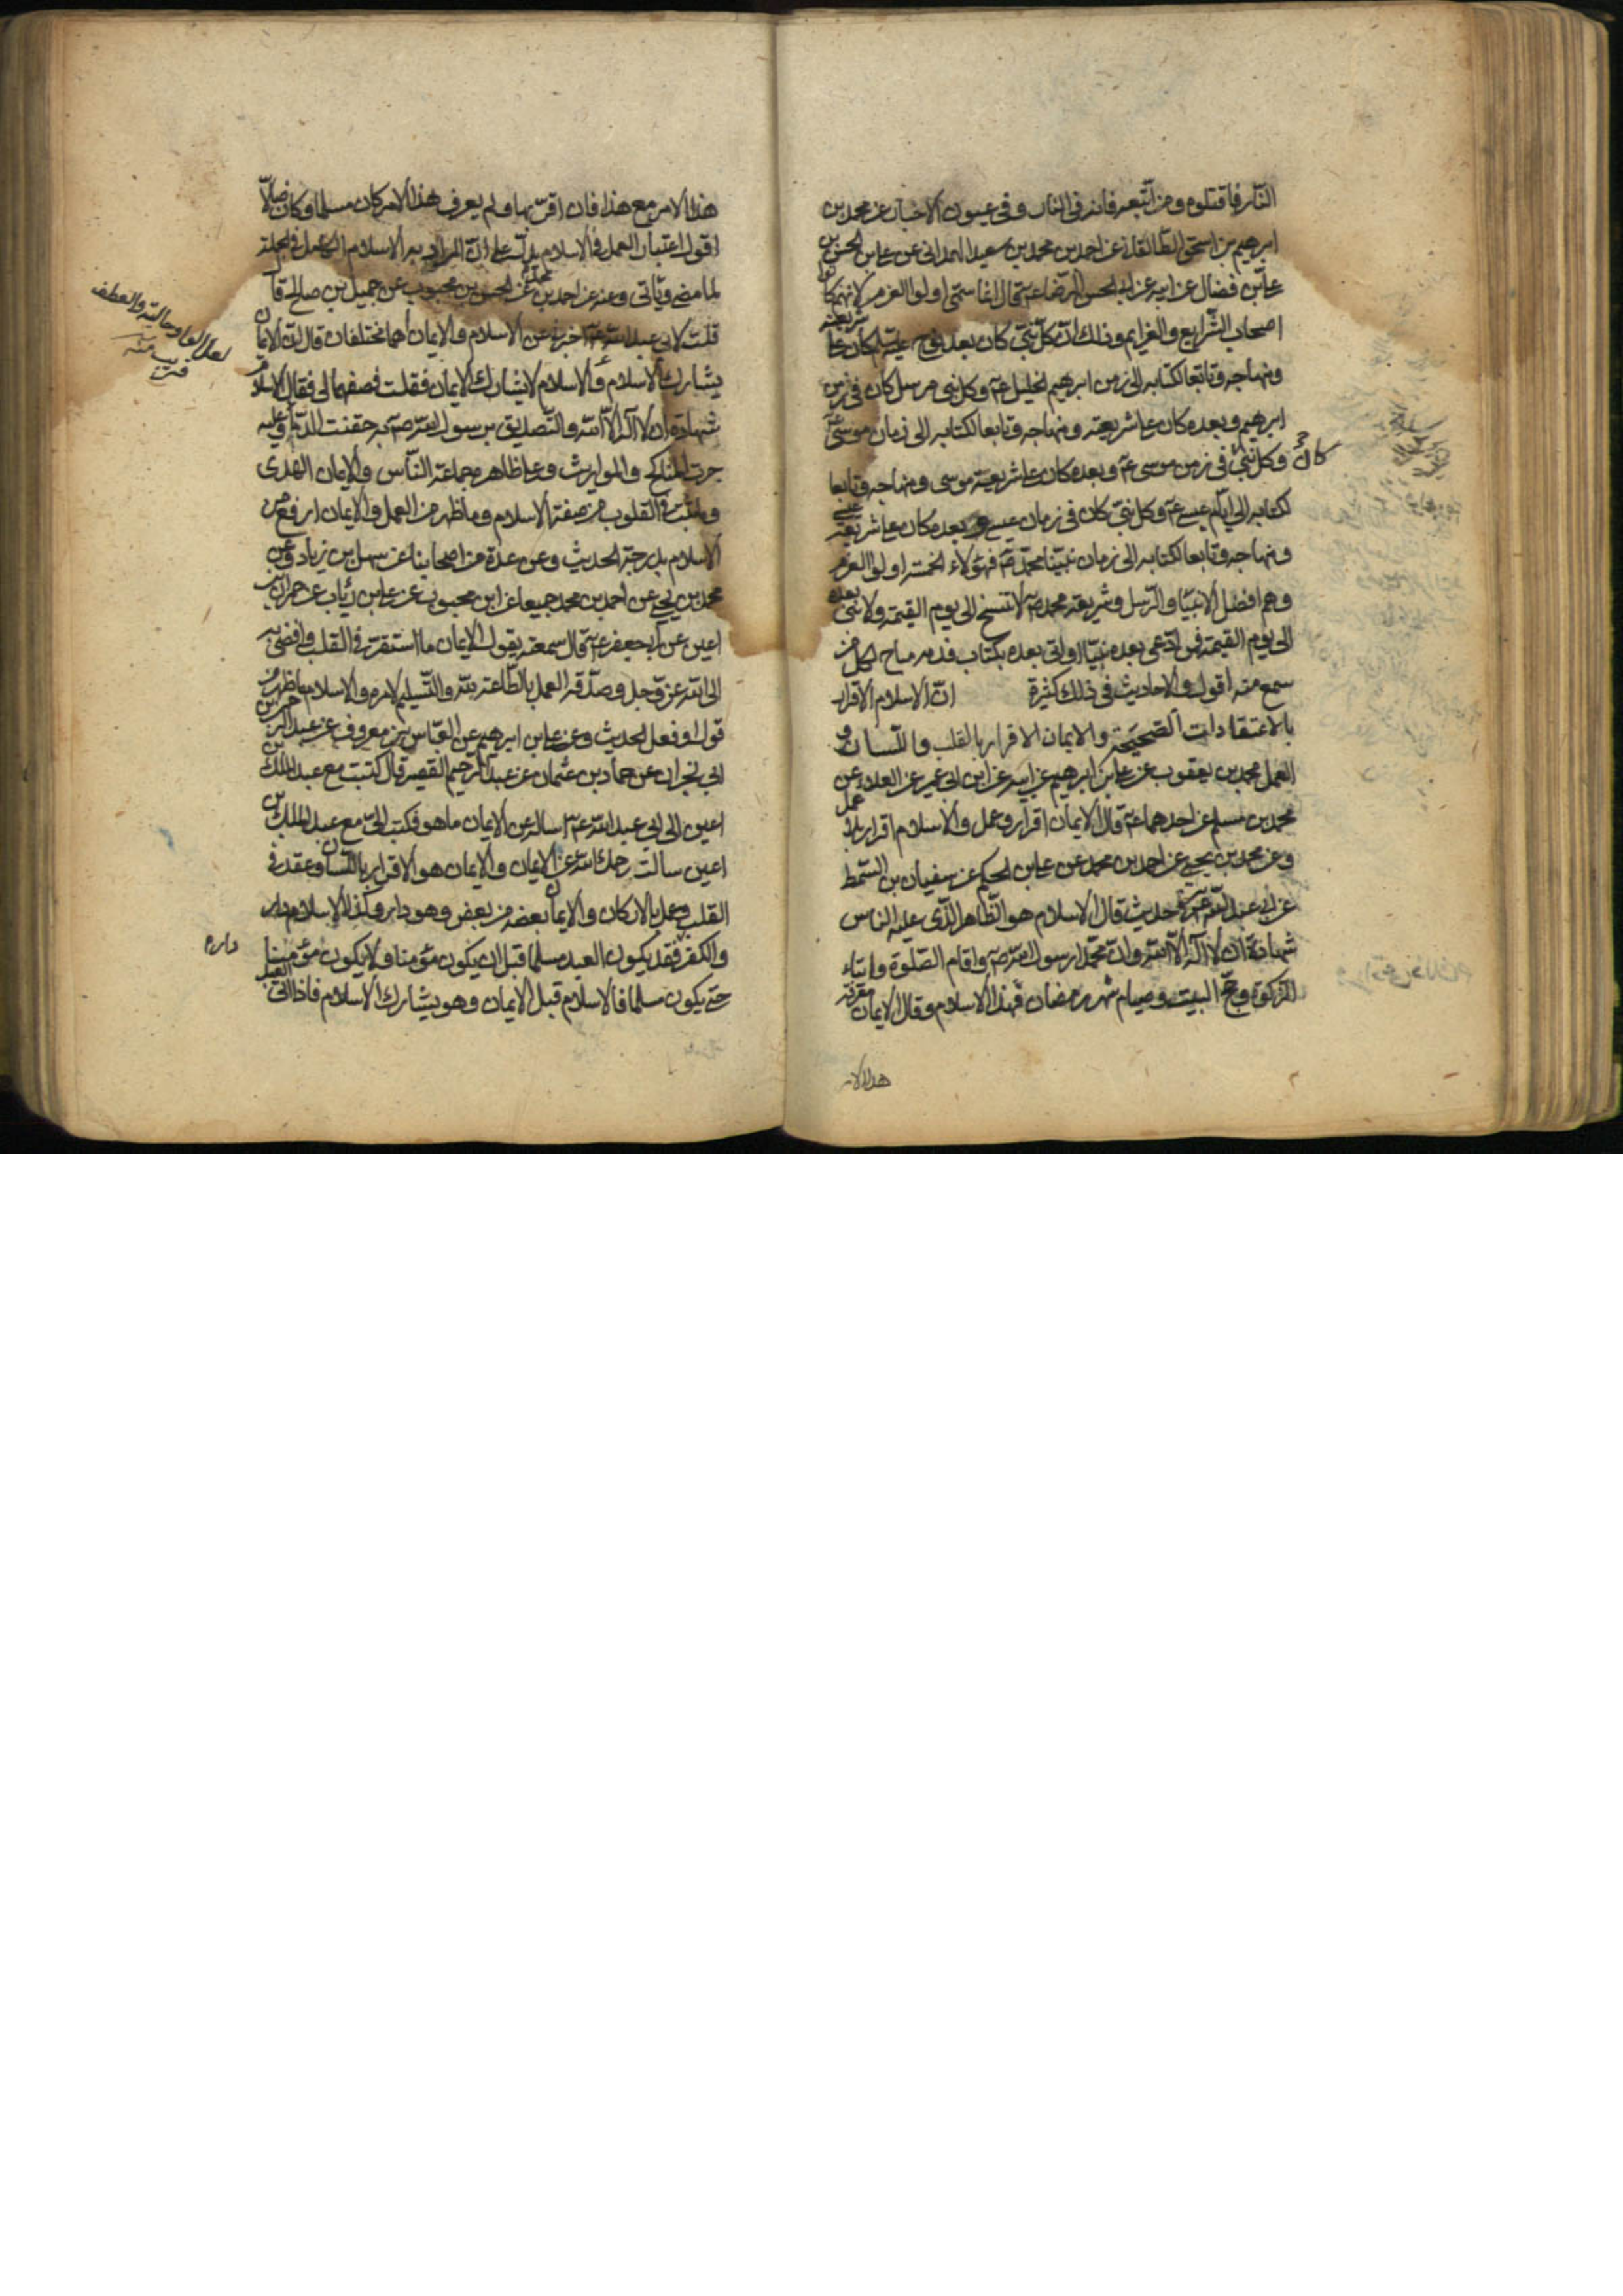 النار فاقتلوه ومن اتبعه فانه في النار وفي عيون الاخبار عن محمد بن
ابرهيم بن اسحق الطالقاني عن احمد بن محمد بن سعيد الهمداني عن علي بن الحسن بن
علي بن فضال عن ابيه عن ابي الحسن الرضا عه قال انما سمي اولوا العزم لانهم كانوا
اصحاب الشرايع والعزايم وذلك ان كل نبي كان بعد نوح عليه السلم كان على شريعته
ومنهاجه وتابعا لكتابه الى زمن ابرهيم الخليل عه وكل نبي مرسل كان في زمن
ابرهيم وبعده كان على شريعته ومنهاجه وتابعا لكتابه الى زمان موسى عه
وكل نبي كان في زمن موسى عه وبعده كان على شريعة موسى ومنهاجه وتابعا
لكتابه الى ايام عيسى عه وكل نبي كان في زمان عيسى وبعده كان على شريعة عيسى
ومنهاجه وتابعا لكتابه الى زمان نبينا محمد صه فهؤلاء الخمسة اولوا العزم
وهم افضل الانبيا والرسل وشريعة محمد صه لا تنسخ الى يوم القيمة ولا نبي بعده
الى يوم القيمة فمن ادعى بعده نبيا او اتى بعده بكتاب فدمه مباح لكل من
سمع منه اقول والاحاديث في ذلك كثيرة ان الاسلام الاقرار
بالاعتقادات الصحيحة والايمان الاقرار بالقلب واللسان و
العمل محمد بن يعقوب عن علي بن ابرهيم عن ابيه عن ابن ابي عمير عن العلاء عن
محمد بن مسلم عن احدهما عه قال الايمان اقرار وعمل والاسلام اقرار بلا عمل
وعن محمد بن يحيى عن احمد بن محمد عن علي بن الحكم عن سفيان بن السمط
عن ابي عبد الله عه في حديث قال الاسلام هو الظاهر الذي عليه الناس
شهادة ان لا اله الا الله وان محمدا رسول الله صه واقام الصلوة وايتاء
الزكوة وحج البيت وصيام شهر رمضان فهذا الاسلام وقال الايمان معرفة
هذا الامر
هذا الامر مع هذا فان اقر بها ولم يعرف هذا الامر كان مسلما وكان ضالا
اقول اعتبار العمل في الاسلام يدل على ان المراد به الاسلام الكامل في الجملة
لما مضى وياتي وعنه عن احمد بن محمد عن الحسن بن محبوب عن جميل بن صالح قال
قلت لابي عبد الله عه اخبرني عن الاسلام والايمان اهما مختلفان قال ان الايمان
يشارك الاسلام والاسلام لا يشارك الايمان فقلت فصفهما لي فقال الاسلام
شهادة ان لا اله الا الله والتصديق برسول الله صه به حقنت الدماء وعليه
جرت المناكح والمواريث وعلى ظاهره جماعة الناس والايمان الهدى
وما يثبت في القلوب من صفة الاسلام وما ظهر من العمل والايمان ارفع من
الاسلام بدرجة الحديث وعن عدة من اصحابنا عن سهل بن زياد وعن
محمد بن يحيى عن احمد بن محمد جميعا عن ابن محبوب عن علي بن رئاب عن حمران بن
اعين عن ابي جعفر عه قال سمعته يقول الايمان ما استقر في القلب وافضى به
الى الله عز وجل وصدقه العمل بالطاعة لله والتسليم لامره والاسلام ما ظهر من
قول او فعل الحديث وعن علي بن ابرهيم عن العباس بن معروف عن عبد الرحمن بن
ابي نجران عن حماد بن عثمان عن عبد الرحيم القصير قال كتبت مع عبد الملك بن
اعين الى ابي عبد الله عه اساله عن الايمان ما هو فكتب الي مع عبد الملك بن
اعين سالت رحمك الله عن الايمان والايمان هو الاقرار باللسان وعقد في
القلب وعمل بالاركان والايمان بعضه من بعض وهو دار وكذلك الاسلام دار
والكفر فقد يكون العبد مسلما قبل ان يكون مؤمنا ولا يكون مؤمنا
حتى يكون مسلما فالاسلام قبل الايمان وهو يشارك الاسلام فاذا اتى العبد
قريب منه
داره